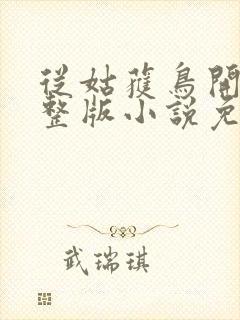 從姑獲鳥開
整版小說免
武瑞琪